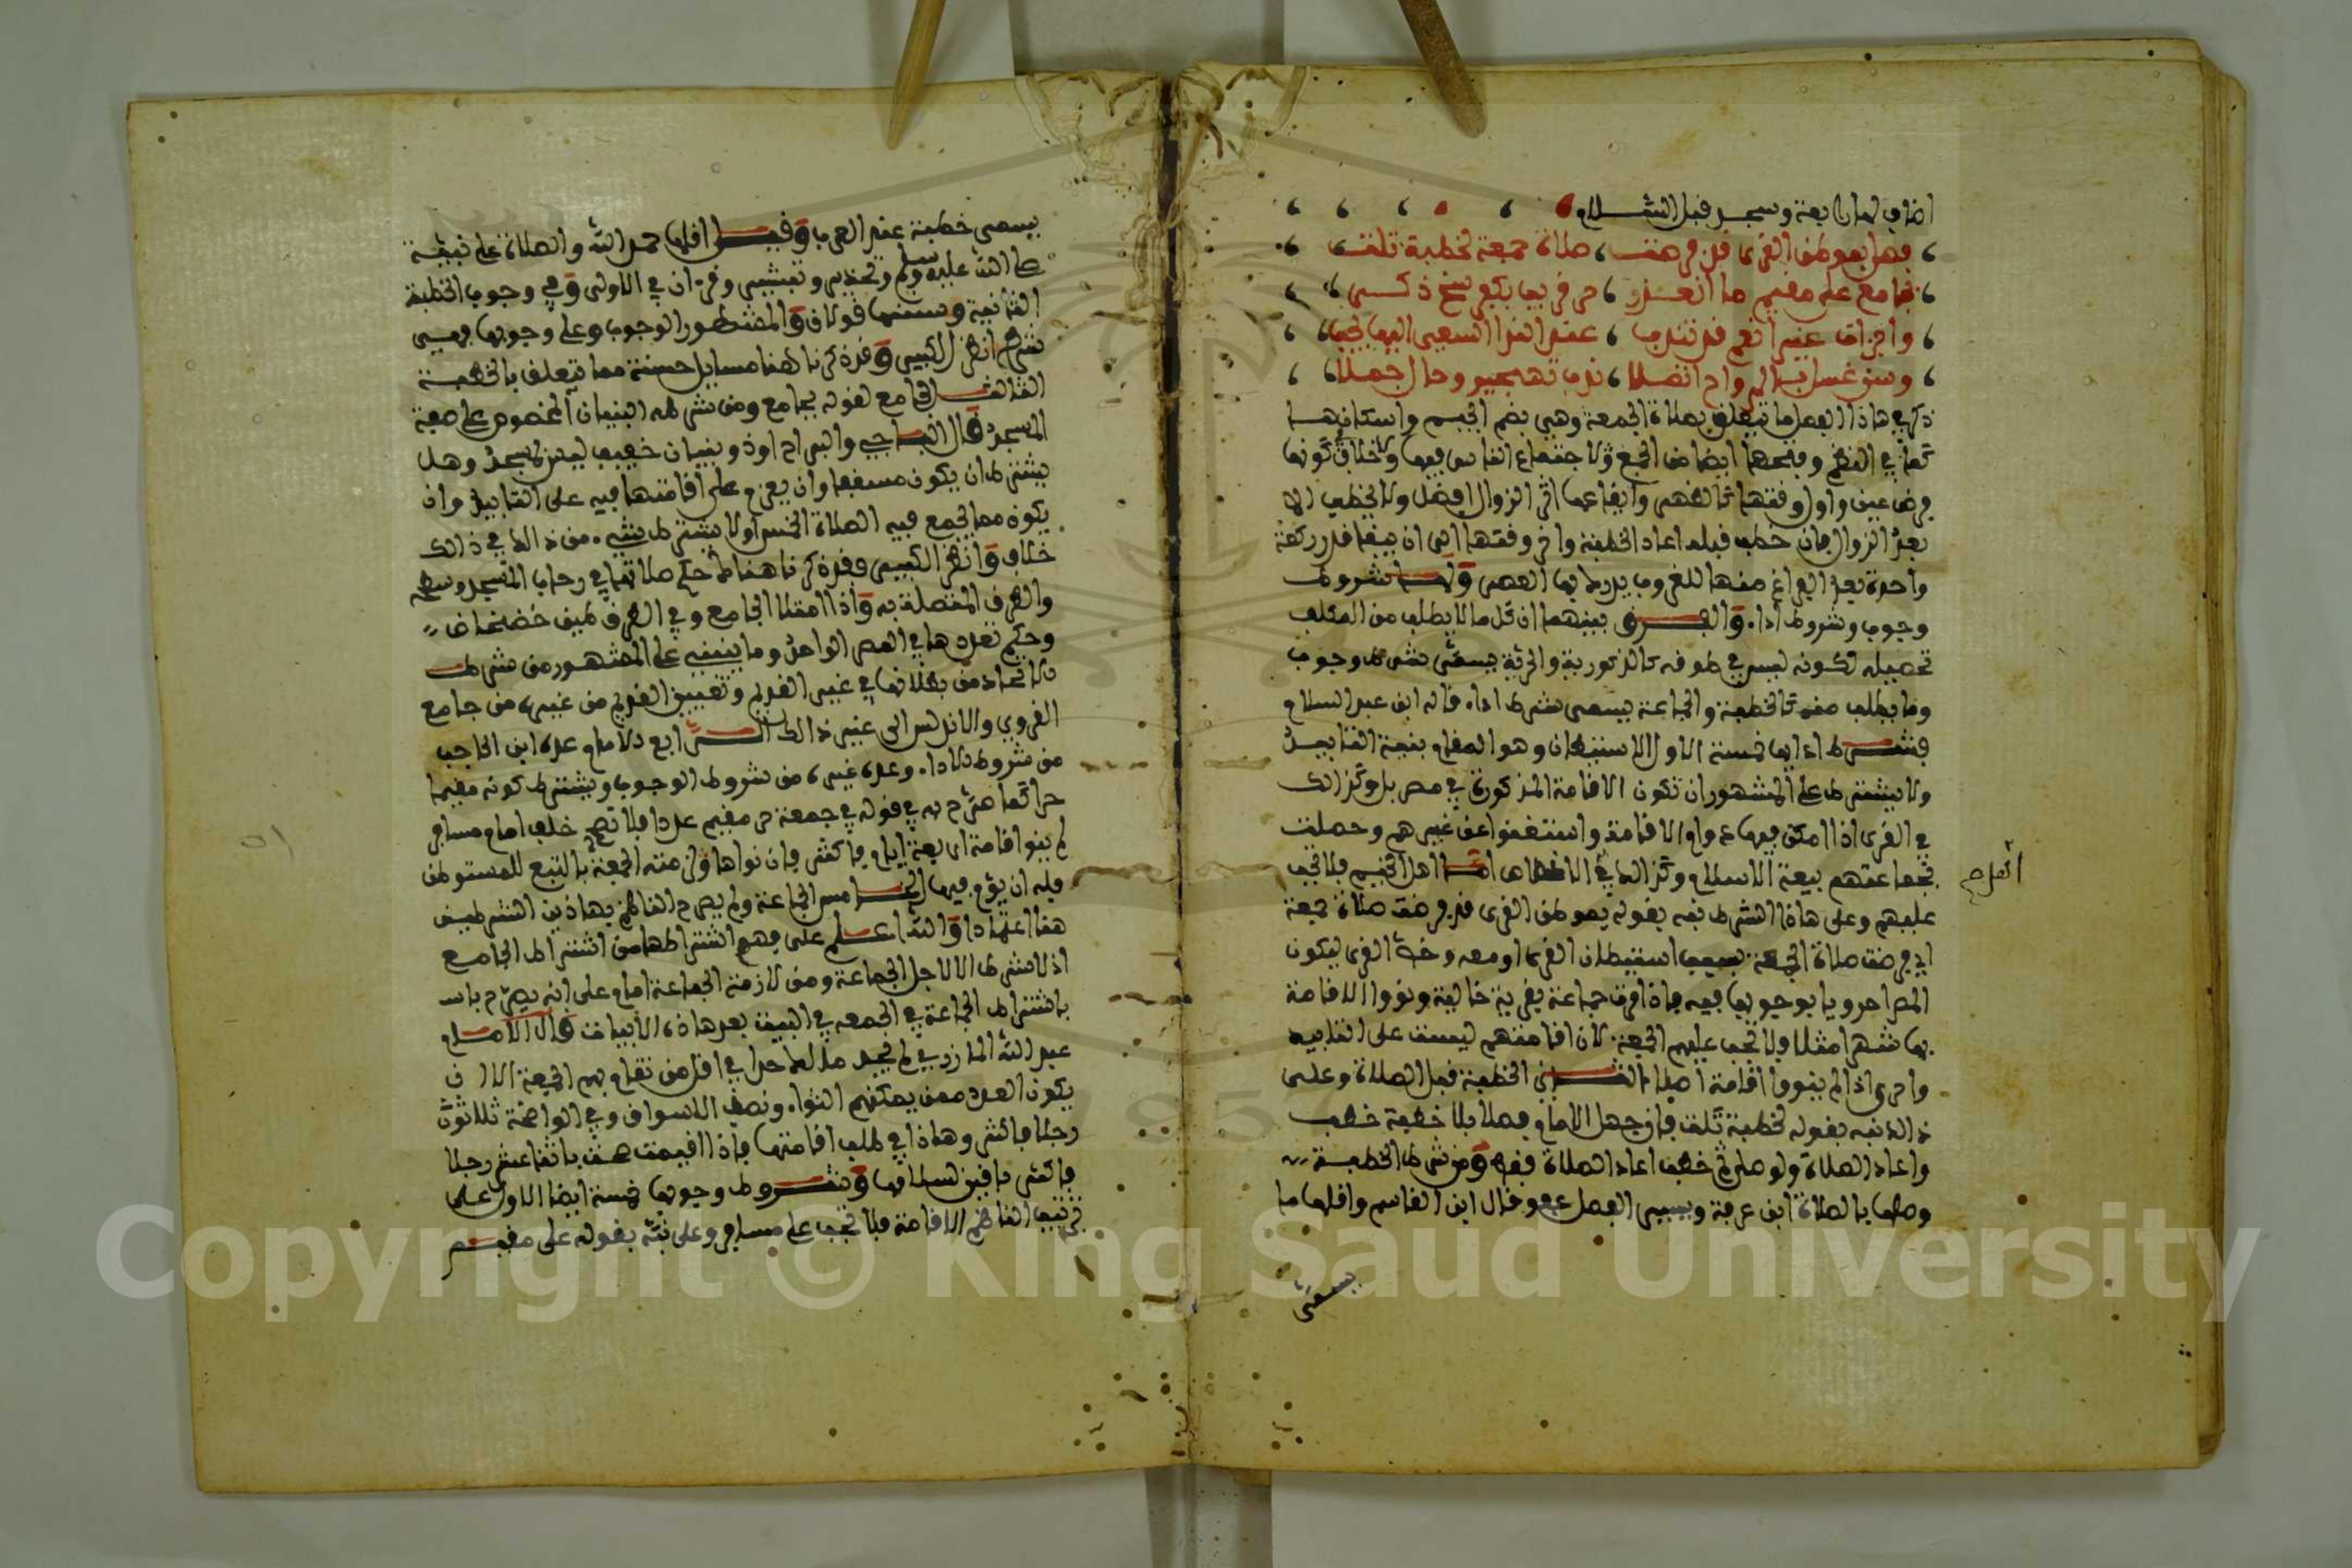 اضاف لها رابعة وسجد قبل السلام
فصل بموطن القرى قد فرضت صلاة جمعة لخطبة تلت
بجامع على مقيم ما انعذر حر قريب بكفرسخ ذكر
واجزات غيرا نعم قد تندب عند الندا السعي اليها يجب
وسن غسل بالرواح اتصلا ندب تهجير وحال جملا
ذكر في هاذا الفصل ما يتعلق بصلاة الجمعة وهي بضم الجيم واسكانها
كما في النظم وفتحها ايضا من الجمع لاجتماع الناس فيها ولا خلاف كونها
فرض عين واول وقتها كالظهر وايقاعها اثر الزوال افضل ولا يخطب الا
بعد الزوال فان خطب قبله اعاد الخطبة واخر وقتها الى ان يبقا قدر ركعة
واحدة بعد الفراغ منها للغروب يدرك بها العصر ولها شروط
وجوب وشروط اداء والفرق بينهما ان كل ما لا يطلب من المكلف
تحصيله لكونه ليس في طوقه كالذكورية والحرية يسمى شرط وجوب
وما يطلب منه كالخطبة والجماعة يسمى شرط اداء قاله ابن عبد السلام
فشروط ادايها خمسة الاول الاستيطان وهو المقام بنية التابيد
ولا يشترط على المشهور ان تكون الاقامة المذكورة في مصر بل وكذالك
في القرى اذا امكن فيها دوام الاقامة واستغنوا عن غيرهم وحصلت
بجماعتهم بيعة الاسلام وكذالك في الاخصاص اما اهل الخيم فلا تجب
عليهم وعلى هاذا الشرط نبه بقوله بموطن القرى قد فرضت صلاة جمعة
اي فرضت صلاة الجمعة بسبب استيطان القرى او معه وخص القرى ليكون
المصر احرويا بوجوبها فيه فاذا مرت جماعة بقرية خالية ونووا الاقامة
بها شهرا مثلا ولا تجب عليهم الجمعة لان اقامتهم ليست على التابيد
واحرى اذا لم ينووا اقامة اصلا الثاني الخطبة قبل الصلاة وعلى
ذالك نبه بقوله لخطبة تلت فان جهل الامام فصلا بلا خطبة خطب
واعاد الصلاة ولو صلى ثم خطب اعاد الصلاة فقط ومن شرط الخطبة
وصلها بالصلاة ابن عرفة ويسير الفصل عفو وقال ابن القاسم واقلها ما
يسمى
انعدم
يسمى خطبة عند العرب وقيل اقلها حمد الله والصلاة على نبيه
صلى الله عليه وسلم وتحذير وتبشير وقرءان في الاولى وفي وجوب الخطبة
الثانية وسنتها قولان والمشهور الوجوب وعلى وجوبها فهي
شرط انظر الكبير وقد ذكرنا هنا مسايل حسنة مما يتعلق بالخطبة
الثالث الجامع لقوله بجامع ومن شرطه البنيان المخصوص على صفة
المسجد قال الباجي والبراح او ذو بنيان خفيف ليس بمسجد وهل
يشترط ان يكون مسقفا وان يعزم على اقامتها فيه على التابيد وان
يكون مما يجمع فيه الصلاة الخمس او لا يشترط شيء من ذالك في ذالك
خلاف وانظر الكبير فقد ذكرنا هنا حكم صلاتها في رحاب المسجد وسطحه
والطرق المتصلة به واذا امتلا الجامع وفي الطرق طين خضخاض
وحكم تعددها في المصر الواحد وما ينبني على المشهور من شرط
الاتحاد من بطلانها في غير القديم وتعيين القديم من غيره من جامع
القروي والاندلس الى غير ذالك الرابع الامام عده ابن الحاجب
من شروط الاداء وعده غيره من شروط الوجوب ويشترط كونه مقيما
حرا كما صرح به في قوله في جمعة حر مقيم عددا فلا تصح خلف امام مسافر
لم ينو اقامة اربعة ايام فاكثر فان نواها ولزمته الجمعة بالتبع للمستوطن
فله ان يؤم فيها الخامس الجماعة ولم يصرح الناظم بهاذين الشرطين
هنا اعتمادا والله اعلم على فهم اشتراطهما من اشتراط الجامع
اذ لا يشترط الا لاجل الجماعة ومن لازمة الجماعة امام على انه يصرح باسـ
باشتراط الجماعة في الجمعه في البيت بعد هاذه الابيات قال الامام
عبد الله المازري لم يحد مالك حدا في اقل من تقام بهم الجمعة الا ان
يكون العدد ممن يمكنهم الثواء ونصب الاسواق وفي الواضحة ثلاثون
رجلا فاكثر وهاذا في طلب اقامتها فاذا اقيمت صحت باثنا عشر رجلا
فاكثر باقين لسلامها وشروط وجوبها خمسة ايضا الاول على
ترتيب الناظم الاقامة فلا تجب على مسافر وعلى نبه بقوله على مقيم